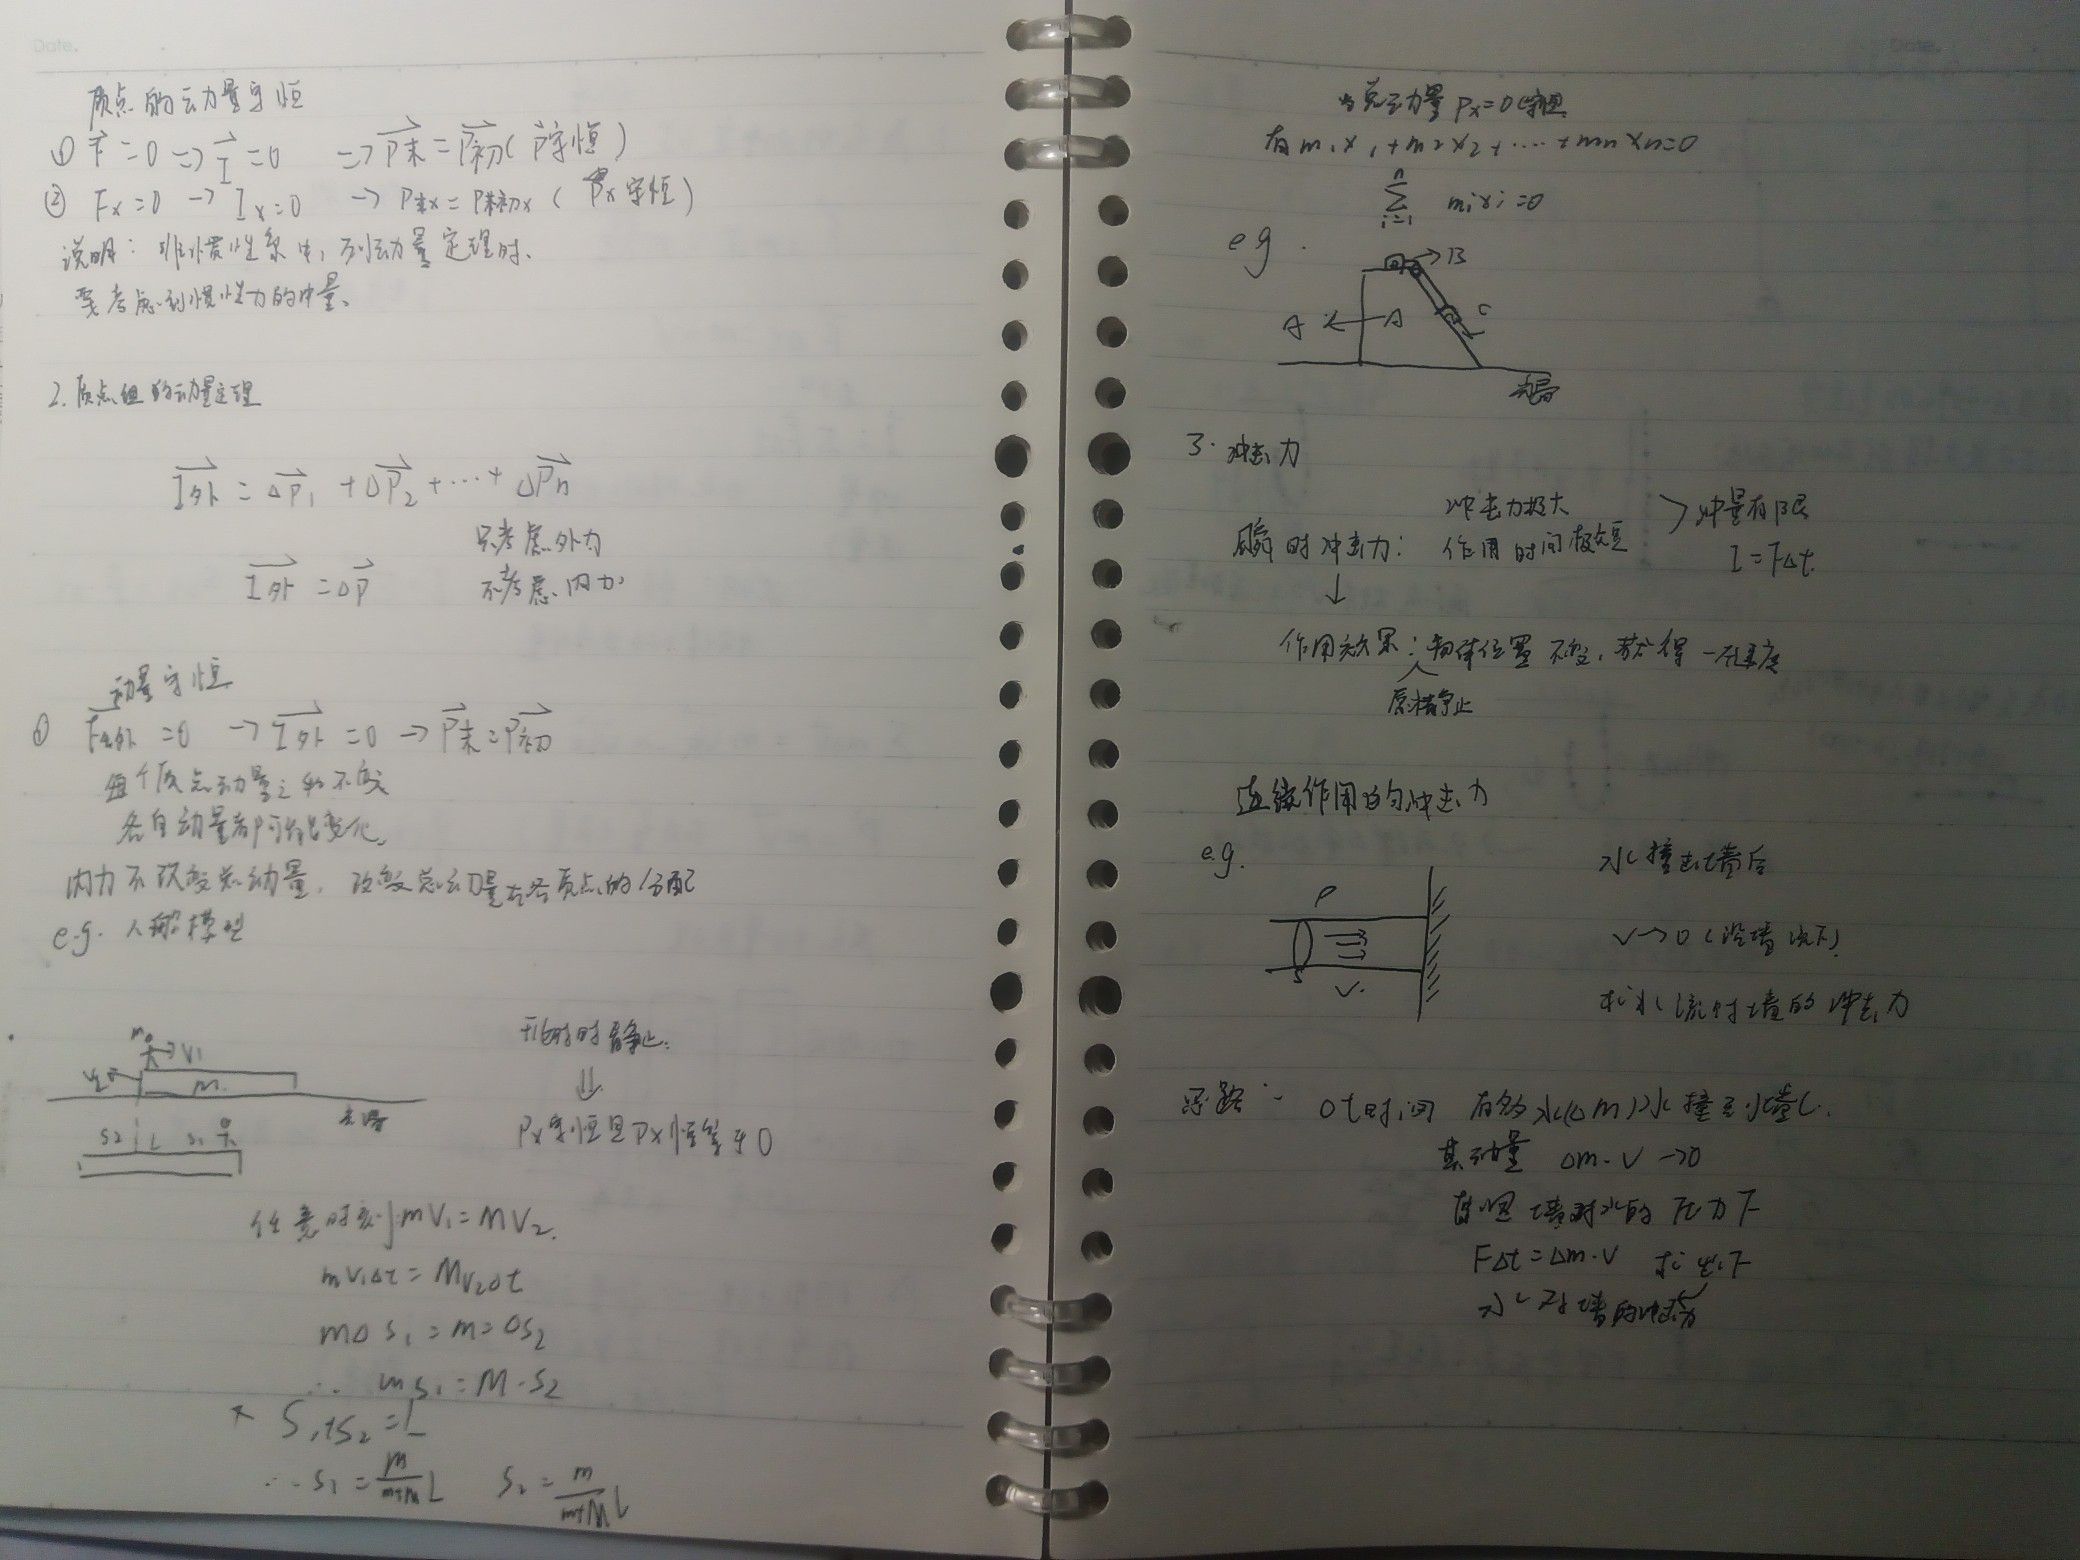 Date.
质点的动量守恒
① F=0 ⇒ I=0 ⇒ P末=P初(P守恒)
② Fx=0 → Ix=0 → P末x=P初x(Px守恒)
说明:非惯性系中,列动量定理时,
要考虑到惯性力的冲量.
2.质点组的动量定理
I外=ΔP1+ΔP2+…+ΔPn
只考虑外力
I外=ΔP
不考虑内力
动量守恒
① F外=0 → I外=0 → P末=P初
每个质点动量之和不变
各自动量都可能变化.
内力不改变总动量,改变总动量在各质点的分配
e.g. 人船模型
m V1
V2 M
光滑
S2 L S1
开始时静止.
⇓
Px守恒且Px恒等于0
任意时刻:mV1=MV2.
mV1Δt=MV2Δt
mΔS1=m=ΔS2
∴ mS1=M·S2
S1+S2=L
∴ S1=M/(m+M) L S2=m/(m+M) L
Date.
当总动量Px=0守恒
有m1x1+m2x2+…+mnxn=0
∑(i=1→n) mixi=0
eg.
B
C
A A
光滑
3.冲击力
冲击力极大
瞬时冲击力: 作用时间极短 > 冲量有限
I=FΔt.
↓
作用效果:物体位置不变,获得一速度
原精静止
连续作用的冲击力
e.g.
水撞击墙后
ρ
V→0(沿墙流下)
S
V.
求水流对墙的冲击力
思路: Δt时间 有多少水(Δm)水撞到墙上.
其动量 Δm·V→0
原因 墙对水的压力F
FΔt=Δm·V 求出F
水对墙的冲击力